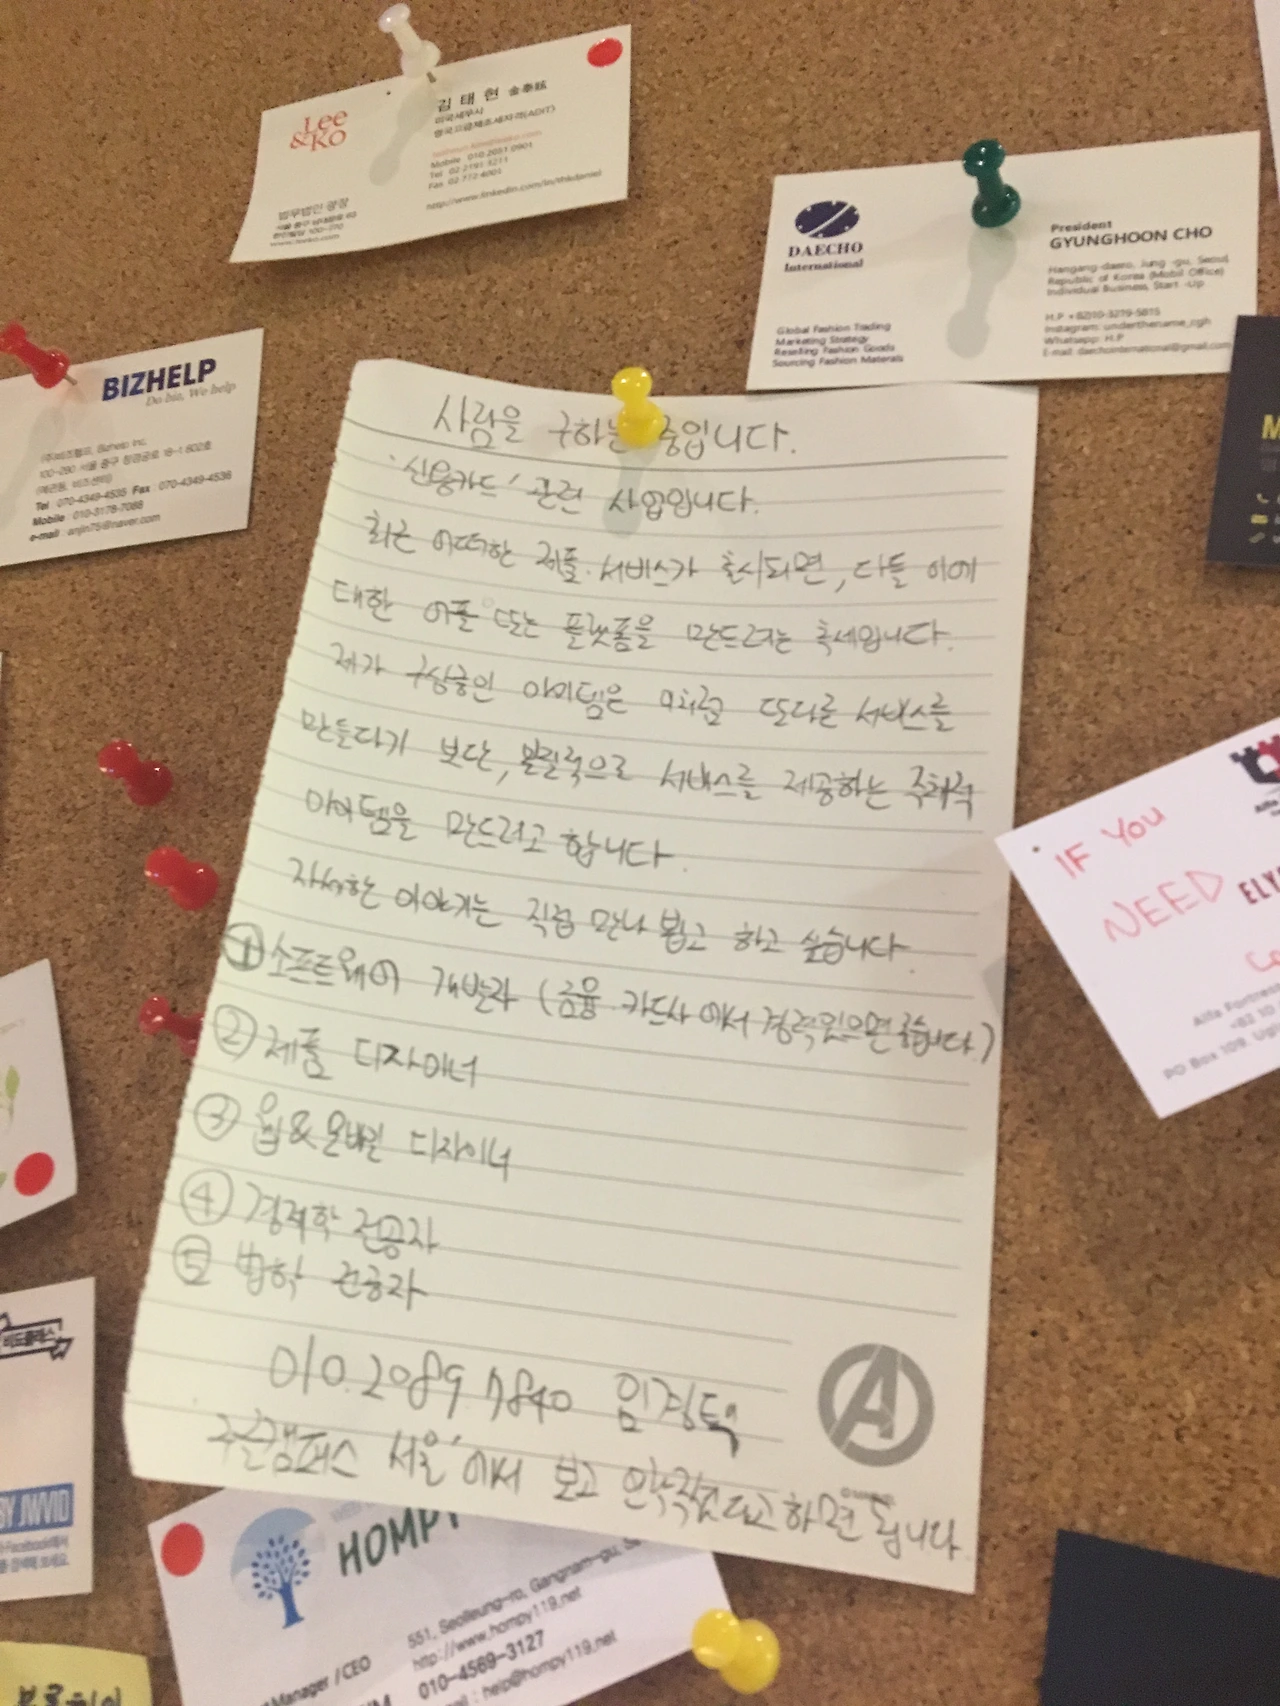 Lee
&KO
김태현 金泰鉉
미국세무사
Mobile 010.2031.0901
Tel 02 2191 3211
Fax 02 772 4001
법무법인 광장
DAECHO
International
Global Fashion Trading
Marketing Strategy
Reselling Fashion Goods
Sourcing Fashion Materials
President
GYUNGHOON CHO
Hangang-daero, Jung -gu, Seoul,
Republic of Korea (Mobil Office)
Individual Business, Start -Up
H.P +82)10-3279-5815
Instagram: underthename_cgh
Whatsapp: H.P
E-mail: daechointernational@gmail.com
BIZHELP
Do biz, We help
(주)비즈헬프, Bizhelp Inc.
Tel : 070-4349-4535 Fax : 070-4349-4536
Mobile : 010-3178-7088
e-mail : anjin75@naver.com
사람을 구하는 중입니다.
'신용카드' 관련 사업입니다.
최근 어떠한 제품·서비스가 출시되면, 다들 이에
대한 어플 또는 플랫폼을 만드려는 추세입니다.
제가 구상중인 아이템은 이처럼 또다른 서비스를
만들다기 보단, 물질적으로 서비스를 제공하는 주체적
아이템을 만드려고 합니다.
자세한 이야기는 직접 만나 뵙고 하고 싶습니다.
① 소프트웨어 개발자 (금융 카드사에서 경력있으면 좋습니다.)
② 제품 디자이너
③ 웹&모바일 디자이너
④ 경제학 전공자
⑤ 법학 전공자
010.2089 7840 임경택
구글캠퍼스 서울'에서 보고 연락줬다고 하면 됩니다.
IF YOU
NEED
PO Box 109
BY JWVID
HOMPY
551, Seolleung-ro, Gangnam-gu,
http://www.hompy119.net
Manager / CEO
010-4569-3127
help@hompy119.net